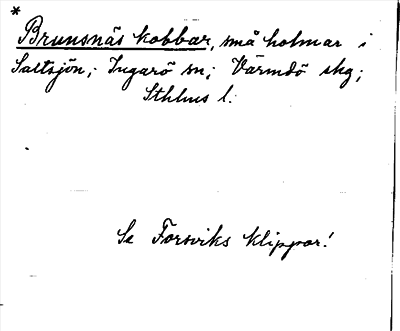 *
Brunsnäs kobbar, små holmar i
Saltsjön; Ingarö sn; Värmdö skg;
Sthlms l.
Se Forsviks klippor!